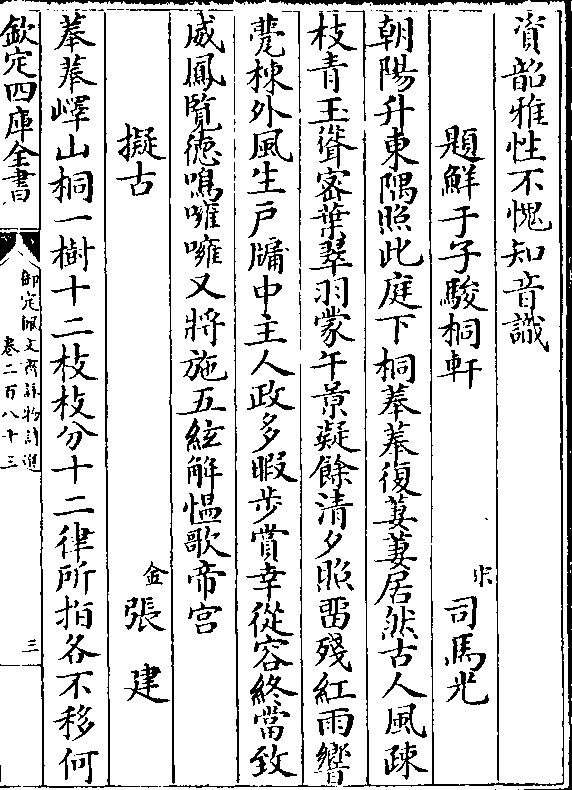 資韶雅性不愧知音識
題鮮于子駿桐軒　宋　司馬光
朝陽升東隅照此庭下桐菶菶復萋萋居然古人風疎
枝青玉聳密葉翠羽蒙午景凝餘清夕照留殘紅雨響
甍棟外風生戶牖中主人政多暇步賞幸從容終當致
威鳳覽德鳴噰噰又將施五絃解慍歌帝宮
擬古　金　張建
菶菶嶧山桐一樹十二枝枝分十二律所指各不移何
欽定四庫全書
御定佩文齋詠物詩選
卷二百八十三
三